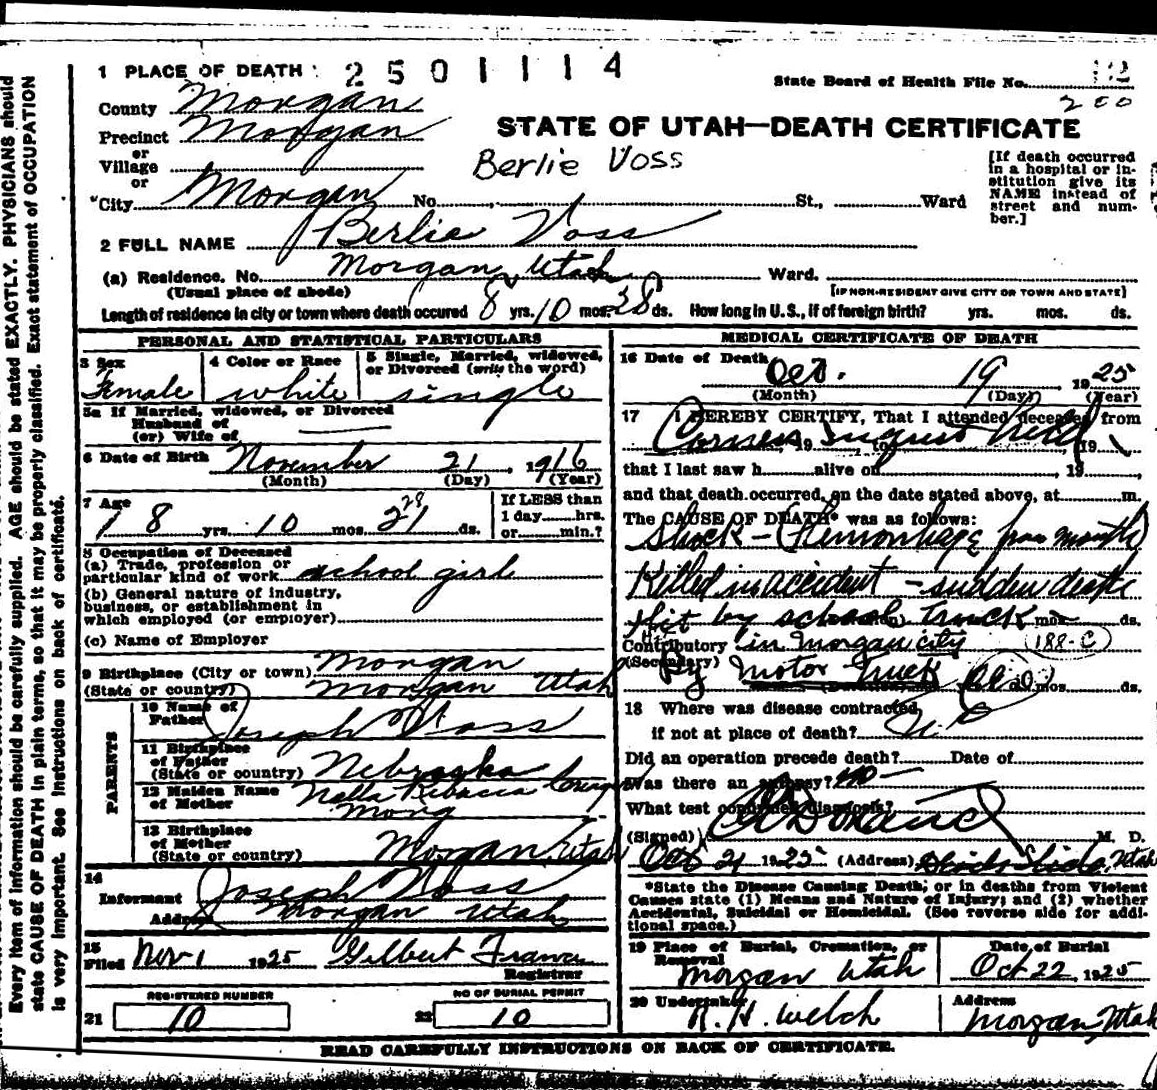 1 PLACE OF DEATH 2501114
State Board of Health File No. 112
200
County Morgan
Precinct Morgan
or
Village
or
City Morgan No. St., Ward
STATE OF UTAH—DEATH CERTIFICATE
Berlie Voss
[If death occurred
in a hospital or in-
stitution give its
NAME instead of
street and num-
ber.]
2 FULL NAME Berlie Voss
(a) Residence. No. Morgan, Utah Ward.
(Usual place of abode) [IF NON-RESIDENT GIVE CITY OR TOWN AND STATE]
Length of residence in city or town where death occured 8 yrs. 10 mos. 28 ds. How long in U.S., if of foreign birth? yrs. mos. ds.
PERSONAL AND STATISTICAL PARTICULARS
3 Sex
Female
4 Color or Race
white
5 Single, Married, widowed,
or Divorced (write the word)
single
5a If Married, widowed, or Divorced
Husband of
(or) Wife of
6 Date of Birth November 21, 1916
(Month) (Day) (Year)
7 Age
8 yrs. 10 mos. 28 ds.
If LESS than
1 day hrs.
or min.?
8 Occupation of Deceased
(a) Trade, profession or
particular kind of work school girl
(b) General nature of industry,
business, or establishment in
which employed (or employer)
(c) Name of Employer
9 Birthplace (City or town) Morgan
(State or country) Morgan Utah
PARENTS
10 Name of
Father Joseph Voss
11 Birthplace
of Father
(State or country) Nebraska
12 Maiden Name
of Mother
13 Birthplace
of Mother
(State or country) Morgan, Utah
14
Informant Joseph Voss
Address Morgan Utah
15
Filed Nov 1 1925 Gilbert Francis
Registrar
REGISTERED NUMBER
21 10
NO OF BURIAL PERMIT
22 10
MEDICAL CERTIFICATE OF DEATH
16 Date of Death Oct. 19, 1925
(Month) (Day) (Year)
17 I HEREBY CERTIFY, That I attended deceased from
19 , to , 19
that I last saw h alive on , 19
and that death occurred, on the date stated above, at m.
The CAUSE OF DEATH* was as follows:
Shock - (Hemorhage from mouth)
Killed in accident - sudden death
Hit by school truck mos ds.
Contributory in Morgan city 188-C
(Secondary) By motor Truck
(Duration) mos ds.
18 Where was disease contracted,
if not at place of death?
Did an operation precede death? Date of
Was there an autopsy? no
What test confirmed diagnosis?
(Signed) M. D.
Oct 21 1925 (Address) Utah
*State the Disease Causing Death, or in deaths from Violent
Causes state (1) Means and Nature of Injury; and (2) whether
Accidental, Suicidal or Homicidal. (See reverse side for addi-
tional space.)
19 Place of Burial, Cremation, or
Removal
Morgan Utah
Date of Burial
Oct 22, 1925
20 Undertaker
R. H. Welch
Address
Morgan, Utah
READ CAREFULLY INSTRUCTIONS ON BACK OF CERTIFICATE.
Every item of information should be carefully supplied. AGE should be stated EXACTLY. PHYSICIANS should
state CAUSE OF DEATH in plain terms, so that it may be properly classified. Exact statement of OCCUPATION
is very important. See Instructions on back of certificate.